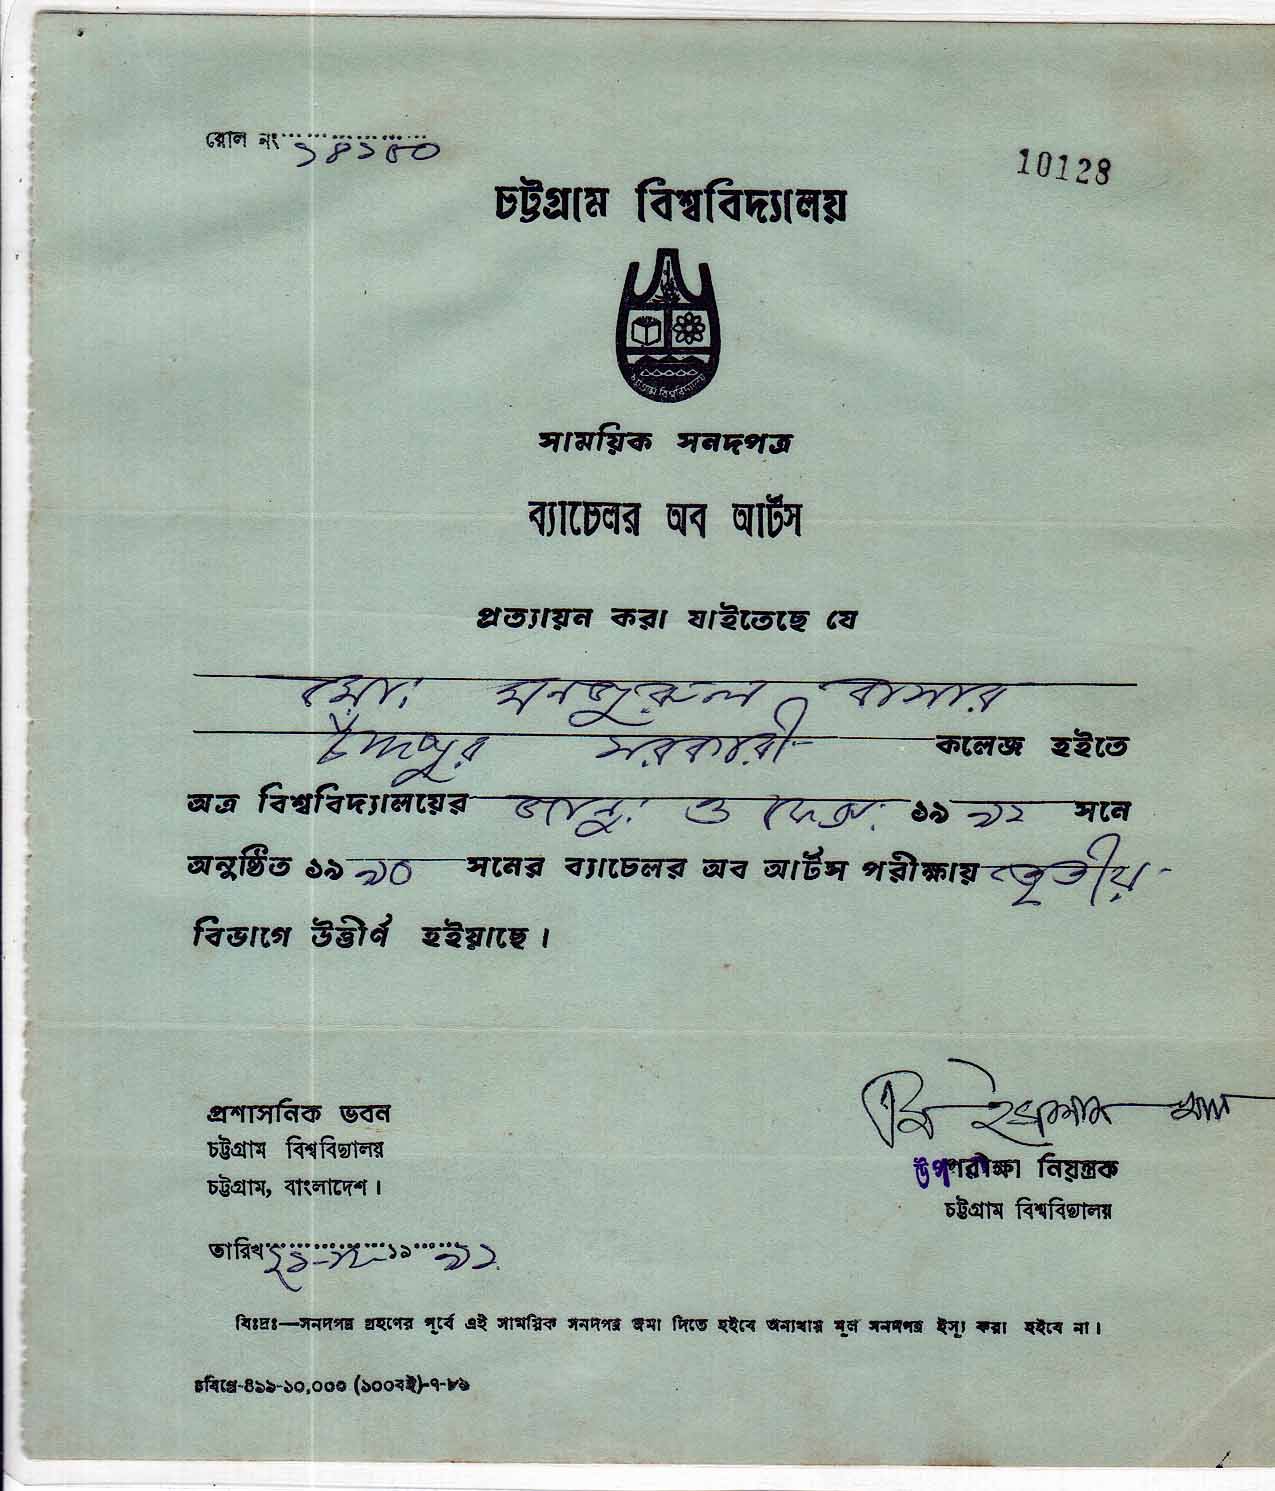 রোল নং ১৪১৫০
10128
চট্টগ্রাম বিশ্ববিদ্যালয়
চট্টগ্রাম বিশ্ববিদ্যালয়
সাময়িক সনদপত্র
ব্যাচেলর অব আর্টস
প্রত্যায়ন করা যাইতেছে যে
মোঃ মনজুরুল বাসার
চাঁদপুর সরকারী কলেজ হইতে
অত্র বিশ্ববিদ্যালয়ের জানুঃ ও ফেব্রুঃ ১৯৯২ সনে
অনুষ্ঠিত ১৯৯০ সনের ব্যাচেলর অব আর্টস পরীক্ষায় তৃতীয়
বিভাগে উত্তীর্ণ হইয়াছে।
প্রশাসনিক ভবন
চট্টগ্রাম বিশ্ববিদ্যালয়
চট্টগ্রাম, বাংলাদেশ।
তারিখ ১৯৯২
উপপরীক্ষা নিয়ন্ত্রক
চট্টগ্রাম বিশ্ববিদ্যালয়
বিঃদ্রঃ—সনদপত্র গ্রহণের পূর্বে এই সাময়িক সনদপত্র জমা দিতে হইবে অন্যথায় মূল সনদপত্র ইস্যু করা হইবে না।
চবিপ্রে-৪১১-১০,০০০ (১০০বই)-৭-৮৯